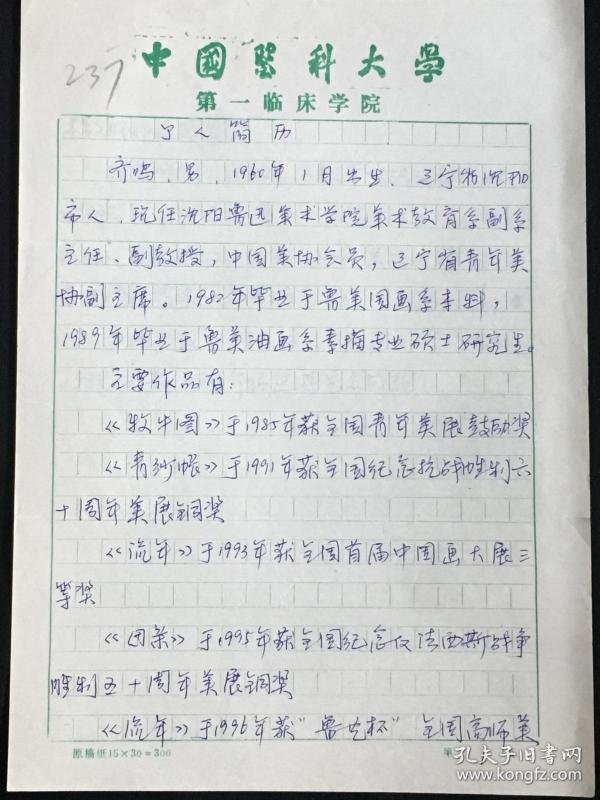 237
中國醫科大學
第一临床学院
个人简历
齐鸣，男，1960年1月出生，辽宁省沈阳
市人，现任沈阳鲁迅美术学院美术教育系副系
主任、副教授，中国美协会员，辽宁省青年美
协副主席。1982年毕业于鲁美国画系本科，
1989年毕业于鲁美油画系素描专业硕士研究生。
主要作品有：
《牧牛图》于1985年获全国青年美展鼓励奖
《青纱帐》于1991年获全国纪念抗战胜利六
十周年美展铜奖
《流年》于1993年获全国首届中国画大展三
等奖
《团亲》于1995年获全国纪念反法西斯战争
胜利五十周年美展铜奖
《流年》于1996年获"鲁艺杯"全国高师美
原稿纸15×30=300
第
孔夫子旧书网
www.kongfz.com